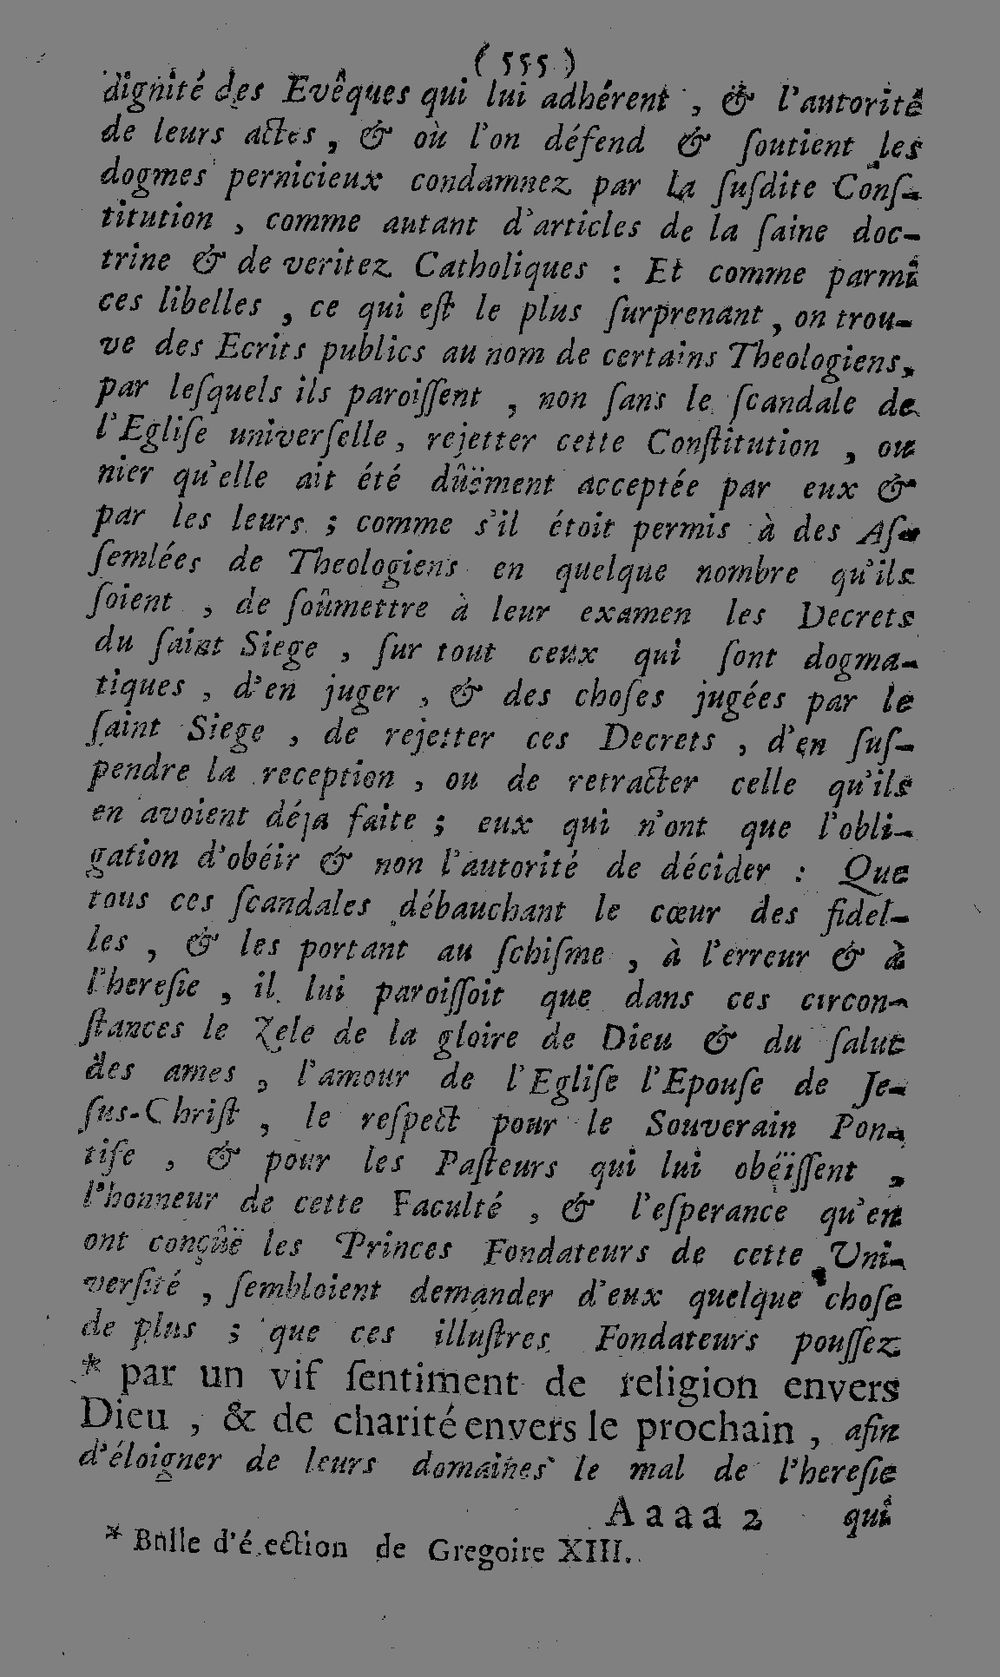 ( 555 )
dignité des Evêques qui lui adhérent , & l'autorité
de leurs actes , & où l'on défend & ſoutient les
dogmes pernicieux condamnez par la ſuſdite Conſ-
titution , comme autant d'articles de la ſaine doc-
trine & de veritez Catholiques : Et comme parmi
ces libelles , ce qui eſt le plus ſurprenant , on trou-
ve des Ecrits publics au nom de certains Theologiens,
par leſquels ils paroiſſent , non ſans le ſcandale de
l'Egliſe univerſelle , rejetter cette Conſtitution , ou
nier qu'elle ait été dûëment acceptée par eux &
par les leurs ; comme s'il étoit permis à des Aſ-
ſemlées de Theologiens en quelque nombre qu'ils
ſoient , de ſoûmettre à leur examen les Decrets
du ſaint Siege , ſur tout ceux qui ſont dogma-
tiques , d'en juger , & des choſes jugées par le
ſaint Siege , de rejetter ces Decrets , d'en ſuſ-
pendre la reception , ou de retracter celle qu'ils
en avoient déja faite ; eux qui n'ont que l'obli-
gation d'obéir & non l'autorité de décider : Que
tous ces ſcandales débauchant le cœur des fidel-
les , & les portant au ſchiſme , à l'erreur & à
l'hereſie , il lui paroiſſoit que dans ces circon-
ſtances le Zele de la gloire de Dieu & du ſalut
des ames , l'amour de l'Egliſe l'Epouſe de Je-
ſus-Chriſt , le reſpect pour le Souverain Pon-
tife , & pour les Paſteurs qui lui obéïſſent ,
l'honneur de cette Faculté , & l'eſperance qu'en
ont conçûë les Princes Fondateurs de cette Uni-
verſité , ſembloient demander d'eux quelque choſe
de plus ; que ces illuſtres Fondateurs pouſſez
* par un vif ſentiment de religion envers
Dieu , & de charité envers le prochain , afin
d'éloigner de leurs domaines le mal de l'hereſie
A a a a 2 qui
* Bulle d'érection de Gregoire XIII.